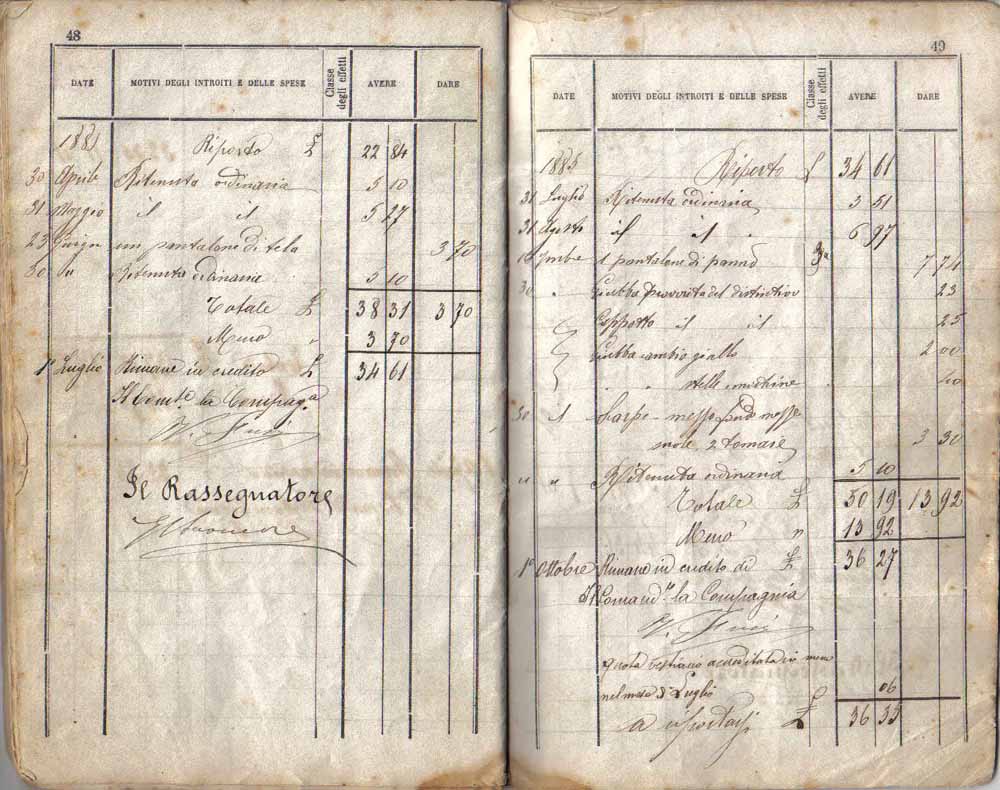 48
DATE MOTIVI DEGLI INTROITI E DELLE SPESE Classe degli effetti AVERE DARE
1885 Riporto £ 22 84
30 Aprile Ritenuta ordinaria 5 10
31 Maggio il il 5 27
23 Giugn un pantalone di tela 3 70
30 " Ritenuta ordinaria 5 10
Totale £ 38 31 3 70
Meno " 3 70
1° Luglio Rimane in credito £ 34 61
Il Comte. la Compaga
Il Rassegnatore
49
DATE MOTIVI DEGLI INTROITI E DELLE SPESE Classe degli effetti AVERE DARE
1885 Riporto £ 34 61
31 Luglio Ritenuta ordinaria 3 51
31 Agosto il il " 6 97
7mbre 1 pantalone di panno 3a 7 74
30 " Giubba del distintivo 23
Cappotto il il 25
Giubba cambio giallo 2 00
" " stelle
30 il Scarpe - mezzo mezze
suole, 2 tomaie 3 30
" " Ritenuta ordinaria 5 10
Totale £ 50 19 13 92
Meno " 13 92
1° Ottobre Rimane in credito di £ 36 27
Il Comandte la Compagnia
quota vestiario accreditata in meno
nel mese di Luglio 06
a riportarsi £ 36 33